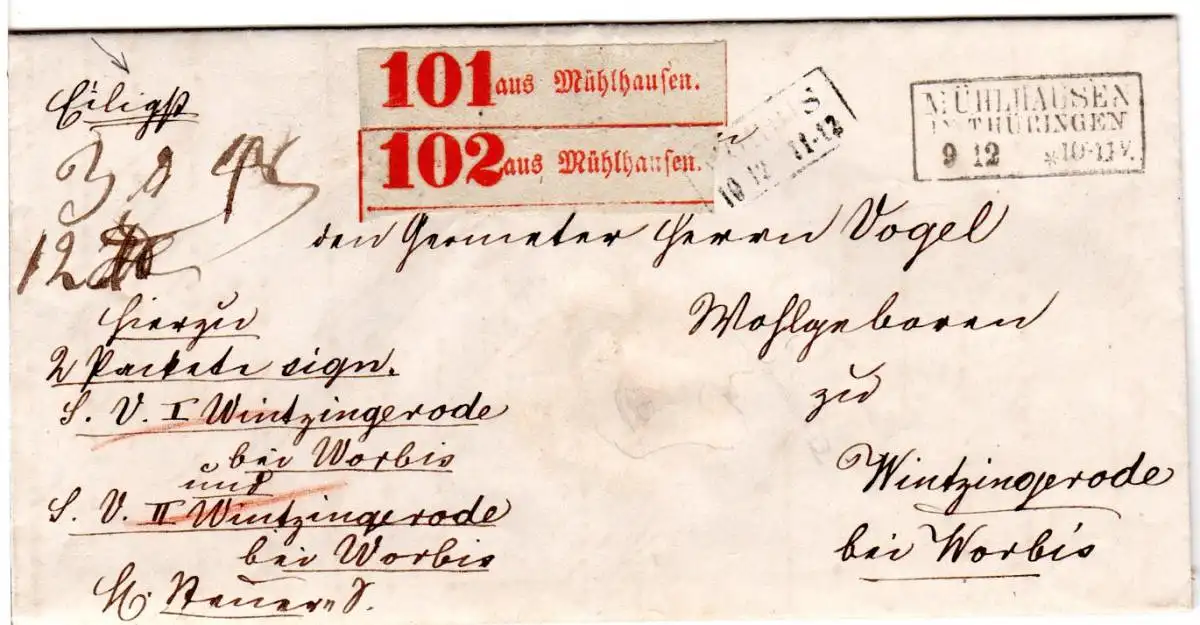 Eiligst
101 aus Mühlhausen.
102 aus Mühlhausen.
10 12 11-12
MÜHLHAUSEN
IN THÜRINGEN
9 12 *10-11 V.
den Geometer Herrn Vogel
Wohlgeboren
zu
Wintzingerode
bei Worbis
12
hierzu
2 Packete sign.
S. V. I Wintzingerode
bei Worbis
und
S. V. II Wintzingerode
bei Worbis
Steuer S.